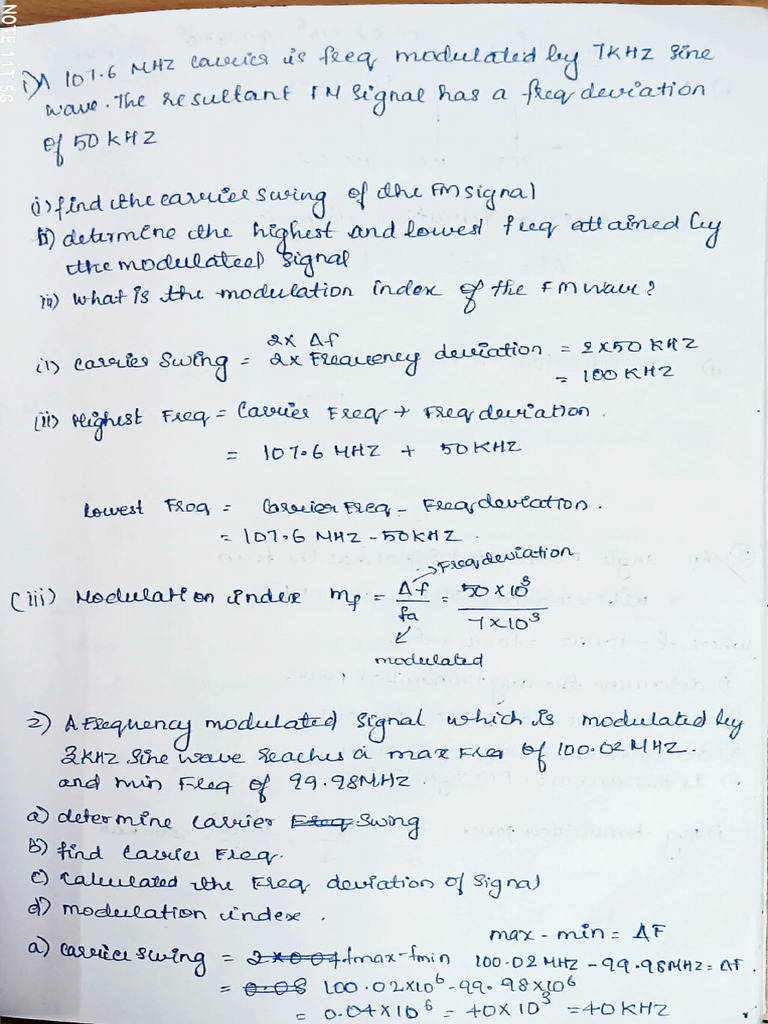 NOTE 11T 5G
1) A 107.6 MHZ carrier is freq modulated by 7KHZ sine
wave. The resultant FM signal has a freq deviation
of 50 KHZ
(i) find the carrier swing of the FM signal
ii) determine the highest and lowest freq attained by
the modulated signal
iii) what is the modulation index of the FM wave?
2x Δf
(i) carrier swing = 2x Frequency deviation = 2x50 KHZ
= 100 KHZ
(ii) Highest Freq = Carrier Freq + Freq deviation.
= 107.6 MHZ + 50KHZ
Lowest Freq = Carrier Freq - Freq deviation.
= 107.6 MHZ - 50KHZ.
→ Freq deviation
(iii) Modulation index mf = Δf/fa = 50x10³/7x10³
modulated
2) A Frequency modulated signal which is modulated by
3KHZ sine wave reaches a max Freq of 100.02 MHZ.
and min Freq of 99.98MHZ.
a) determine carrier Freq Swing
b) find Carrier Freq.
c) calculated the Freq deviation of signal
d) modulation index.
max - min = ΔF
a) carrier swing = 2x0.04 fmax-fmin 100.02 MHZ - 99.98MHZ = ΔF.
= 0.08 100.02x10⁶ - 99.98x10⁶
= 0.04x10⁶ = 40x10³ = 40 KHZ